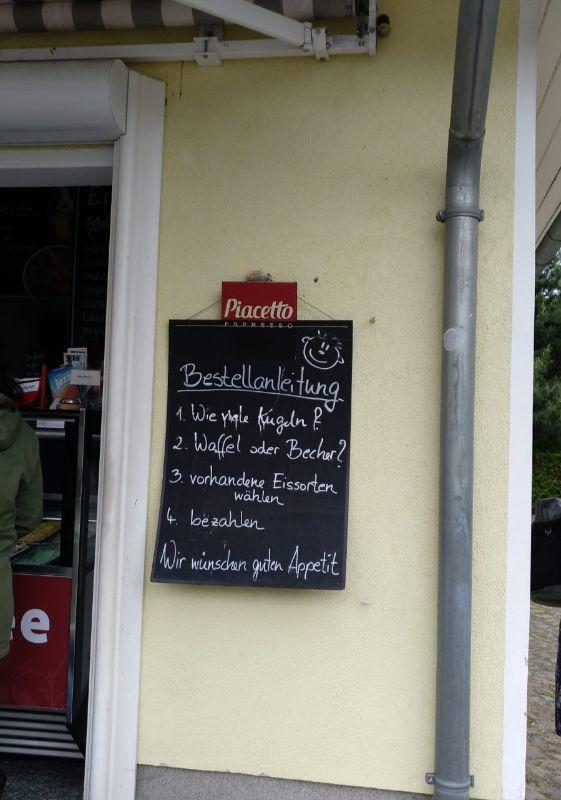 Piacetto
ESPRESSO
Bestellanleitung
1. Wie viele Kugeln?
2. Waffel oder Becher?
3. vorhandene Eissorten
wählen
4. bezahlen
Wir wünschen guten Appetit
ee